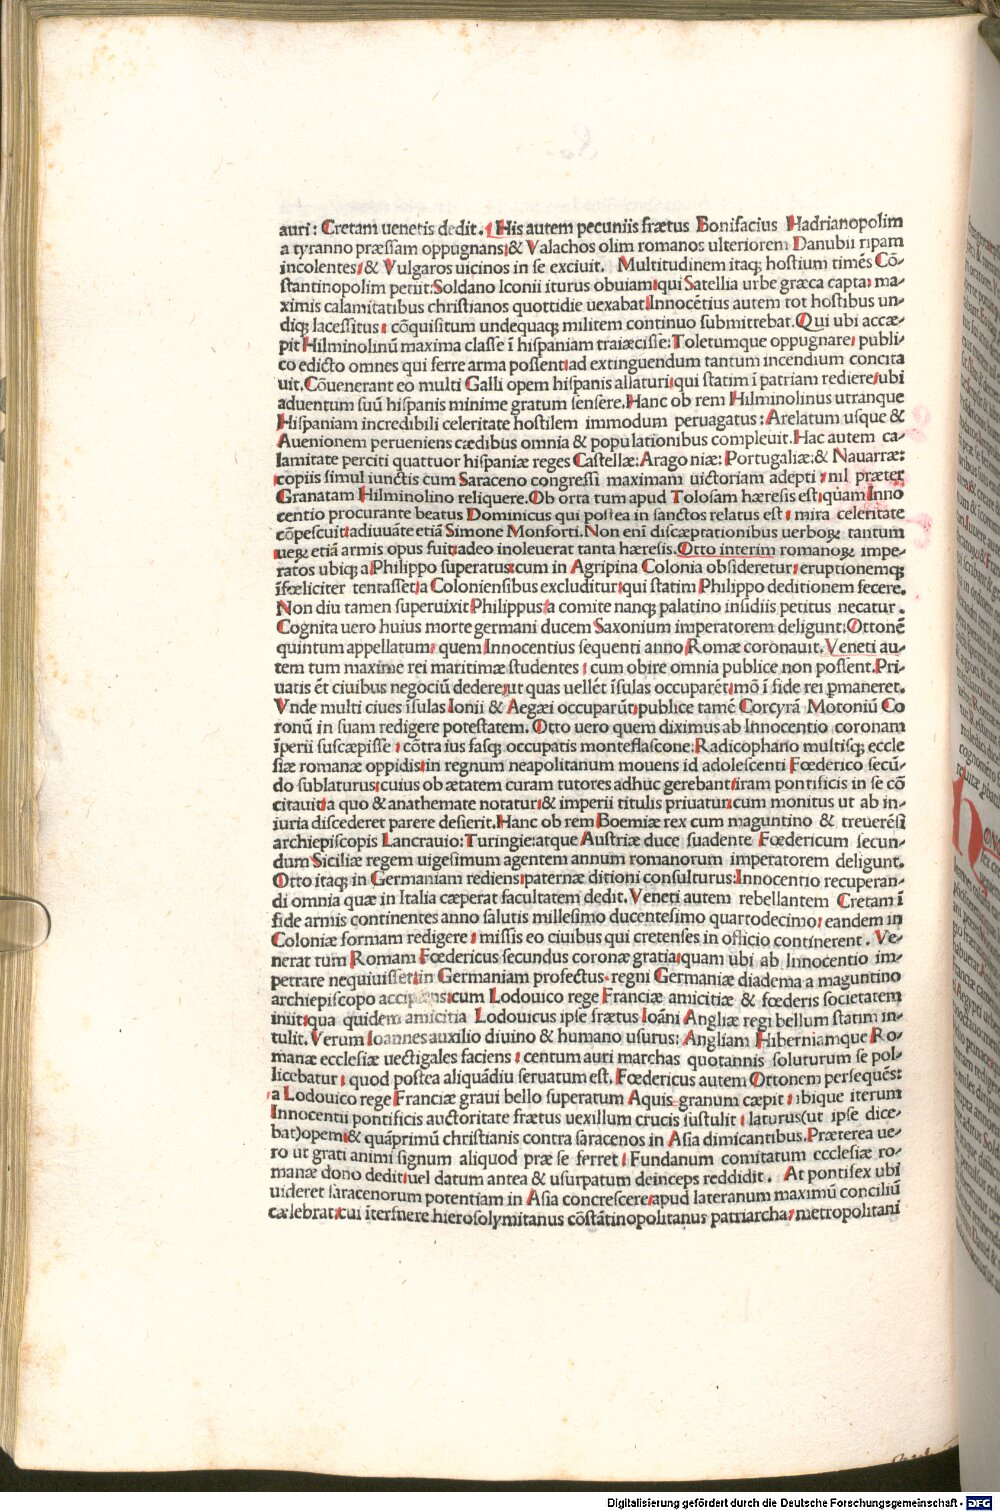 auri: Cretam uenetis dedit. His autem pecuniis frætus Bonifacius Hadrianopolim
a tyranno præssam oppugnans/& Valachos olim romanos ulteriorem Danubii ripam
incolentes/& Vulgaros uicinos in se exciuit. Multitudinem itaqꝫ hostium timẽs Cõ-
stantinopolim petiit:Soldano Iconii iturus obuiam/qui Satellia urbe græca capta/ ma-
ximis calamitatibus christianos quottidie uexabat/Innocẽtius autem tot hostibus un-
diqꝫ lacessitus/ cõquisitum undequaqꝫ militem continuo submittebat.Qui ubi accæ-
pit Hilminolinũ maxima classe ĩ hispaniam traiæcisse:Toletumque oppugnare/ publi-
co edicto omnes qui ferre arma possent/ad extinguendum tantum incendium concita
uit.Cõuenerant eo multi Galli opem hispanis allaturi/qui statim ĩ patriam rediere/ubi
aduentum suũ hispanis minime gratum sensere.Hanc ob rem Hilminolinus utranque
Hispaniam incredibili celeritate hostilem immodum peruagatus: Arelatum usque &
Auenionem perueniens cædibus omnia & populationibus compleuit.Hac autem ca-
lamitate perciti quattuor hispaniæ reges Castellæ: Aragoniæ: Portugaliæ:& Nauarræ:
copiis simul iunctis cum Saraceno congressi maximam uictoriam adepti/ nil præter
Granatam Hilminolino reliquere.Ob orta tum apud Tolosam hæresis est/quam Inno
centio procurante beatus Dominicus qui postea in sanctos relatus est/ mira celeritate
cõpescuit/adiuuãte etiã Simone Monforti.Non eni̅ discæptationibus uerboꝝ tantum
ueꝝ etiã armis opus fuit/adeo inoleuerat tanta hæresis.Otto interim romanoꝝ impe-
ratos ubiqꝫ a Philippo superatus/cum in Agripina Colonia obsideretur/eruptionemqꝫ
ĩfœliciter tentasset/a Coloniensibus excluditur/qui statim Philippo deditionem fecere.
Non diu tamen superuixit Philippus/a comite nanqꝫ palatino insidiis petitus necatur.
Cognita uero huius morte germani ducem Saxonium imperatorem deligunt:Ottonẽ
quintum appellatum/ quem Innocentius sequenti anno Romæ coronauit.Veneti au-
tem tum maxime rei maritimæ studentes/ cum obire omnia publice non possent.Pri-
uatis ẽt ciuibus negociũ dedere/ut quas uellẽt ĩsulas occuparẽt/mõ ĩ fide rei ꝑmaneret.
Vnde multi ciues ĩsulas Ionii & Aegæi occuparũt/publice tamẽ Corcyrã Motoniũ Co
ronũ in suam redigere potestatem. Otto uero quem diximus ab Innocentio coronam
ĩperii suscæpisse/ cõtra ius fasqꝫ occupatis monteflascone:Radicophano multisqꝫ eccle
siæ romanæ oppidis/in regnum neapolitanum mouens id adolescenti Fœderico secũ-
do sublaturus/cuius ob ætatem curam tutores adhuc gerebant/iram pontificis in se cõ
citauit/a quo & anathemate notatur/& imperii titulis priuatur/cum monitus ut ab in-
iuria discederet parere desierit.Hanc ob rem Boemiæ rex cum maguntino & treuerẽsi
archiepiscopis Lancrauio:Turingie:atque Austriæ duce suadente Fœdericum secun-
dum Siciliæ regem uigesimum agentem annum romanorum imperatorem deligunt.
Otto itaqꝫ in Germaniam rediens/paternæ ditioni consulturus:Innocentio recuperan-
di omnia quæ in Italia cæperat facultatem dedit.Veneti autem rebellantem Cretam ĩ
fide armis continentes anno salutis millesimo ducentesimo quartodecimo/ eandem in
Coloniæ formam redigere/ missis eo ciuibus qui cretenses in officio continerent. Ve-
nerat tum Romam Fœdericus secundus coronæ gratia/quam ubi ab Innocentio im-
petrare nequiuisset/in Germaniam profectus/regni Germaniæ diadema a maguntino
archiepiscopo accipiens/cum Lodouico rege Franciæ amicitiæ & fœderis societatem
iniit/qua quidem amicitia Lodouicus ipse frætus Ioãni Angliæ regi bellum statim in-
tulit. Verum Ioannes auxilio diuino & humano usurus: Angliam Hiberniamque Ro-
manæ ecclesiæ uectigales faciens/ centum auri marchas quotannis soluturum se pol-
licebatur/ quod postea aliquãdiu seruatum est. Fœdericus autem Ottonem persequẽs:
a Lodouico rege Franciæ graui bello superatum Aquis granum cæpit/ ibique iterum
Innocentii pontificis auctoritate frætus uexillum crucis sustulit/ laturus(ut ipse dice-
bat)opem/& quãprimũ christianis contra saracenos in Asia dimicantibus.Præterea ue-
ro ut grati animi signum aliquod præ se ferret/ Fundanum comitatum ecclesiæ ro-
manæ dono dedit/uel datum antea & usurpatum deinceps reddidit. At pontifex ubi
uideret saracenorum potentiam in Asia concrescere/apud lateranum maximũ conciliũ
cælebrat/cui ĩterfuere hierosolymitanus cõstãtinopolitanus patriarcha/metropolitani
Digitalisierung gefördert durch die Deutsche Forschungsgemeinschaft - DFG